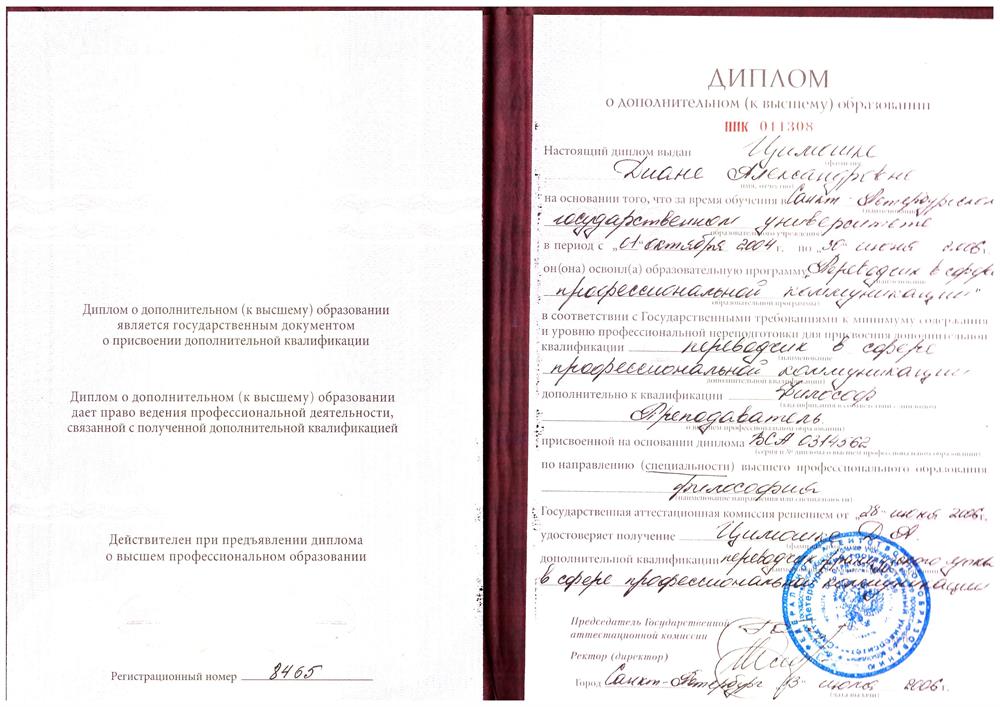 Диплом о дополнительном (к высшему) образовании
является государственным документом
о присвоении дополнительной квалификации
Диплом о дополнительном (к высшему) образовании
дает право ведения профессиональной деятельности,
связанной с полученной дополнительной квалификацией
Действителен при предъявлении диплома
о высшем профессиональном образовании
Регистрационный номер 8465
ДИПЛОМ
о дополнительном (к высшему) образовании
ППК 011308
Настоящий диплом выдан Цимошке
(фамилия)
Диане Александровне
имя, отчество)
на основании того, что за время обучения в Санкт-Петербургском
(наименование
государственном университете
образовательного учреждения)
в период с „01“ октября 2004 г. по „30“ июня 2006 г.
он(она) освоил(а) образовательную программу „Переводчик в сфере
(наименование
профессиональной коммуникации“
образовательной программы)
в соответствии с Государственными требованиями к минимуму содержания
и уровню профессиональной переподготовки для присвоения дополнительной
квалификации переводчик в сфере
(наименование
профессиональной коммуникации
дополнительной квалификации)
дополнительно к квалификации Философ
Преподаватель.
о высшем профессиональном образовании)
присвоенной на основании диплома ВСА 0314562
(серия и № диплома о высшем профессиональном образовании)
по направлению (специальности) высшего профессионального образования
философия
(наименование направления или специальности)
Государственная аттестационная комиссия решением от „28“ июня 2006 г.
удостоверяет получение Д. А.
дополнительной квалификации переводчик
в сфере профессиональной коммуникации
Председатель Государственной
аттестационной комиссии
Ректор (директор)
Город Санкт-Петербург июня 2006 г.
(дата выдачи)